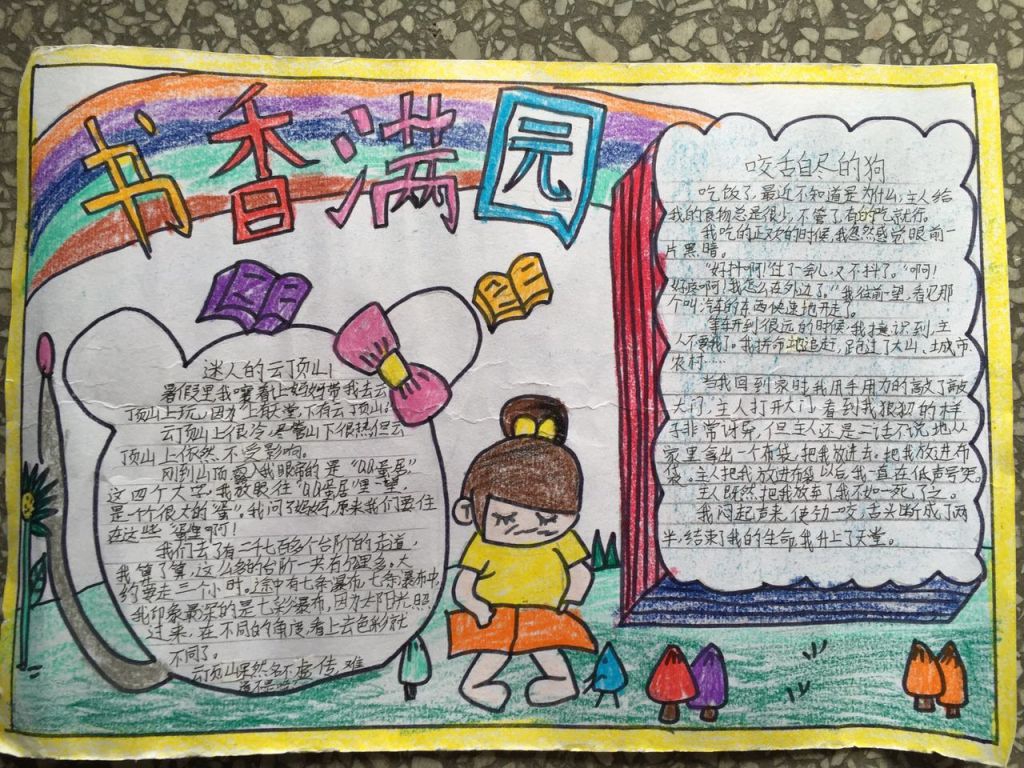 书香满园
迷人的云顶山
暑假里我嚷着让妈妈带我去云
顶山上玩,因为上有天堂,下有云顶山。
云顶山上很冷,尽管山下很热,但云
顶山上依然不受影响。
刚到山顶,露入我眼帘的是“QQ蛋居”
这四个大字。我放眼往“QQ蛋居”里一望,
是一个个很大的“蛋”。我问了妈妈,原来我们要住
在这些“蛋”里啊!
我们去了有二千七百多个台阶的走道,
我算了算,这么多的台阶一共有
约要走三个小时。途中有七条瀑布,七条瀑布中
我印象最深的是七彩瀑布,因为太阳光照
过来,在不同的角度,看上去色彩就
不同了。
云顶山果然名不虚传,难
咬舌自尽的狗
吃饭了,最近不知道是为什么,主人给
我的食物总是很少,不管了,有的吃就行。
我吃的正欢的时候,我忽然感觉眼前一
片黑暗。
“好抖啊!”过了一会儿,又不抖了。“啊!
好疼啊!我怎么在外边了。”我往前一望,看见那
个叫汽车的东西快速地开走了。
车开到很远的时候,我意识到,主
人不要我了。我拼命地追赶,跑过了大山、城市、
农村……
当我回到家时,我用手用力的敲了敲
大门,主人打开大门,看到我狼狈的样
子非常讶异,但主人还是二话不说,地从
家里拿出一个布袋,把我放进去。把我放进布
袋。主人把我放进布袋以后,我一直在低声号哭。
主人既然把我放弃了,我不如一死了之。
我闷起声来,使劲一咬,舌头断成了两
半,结束了我的生命,我升上了天堂。